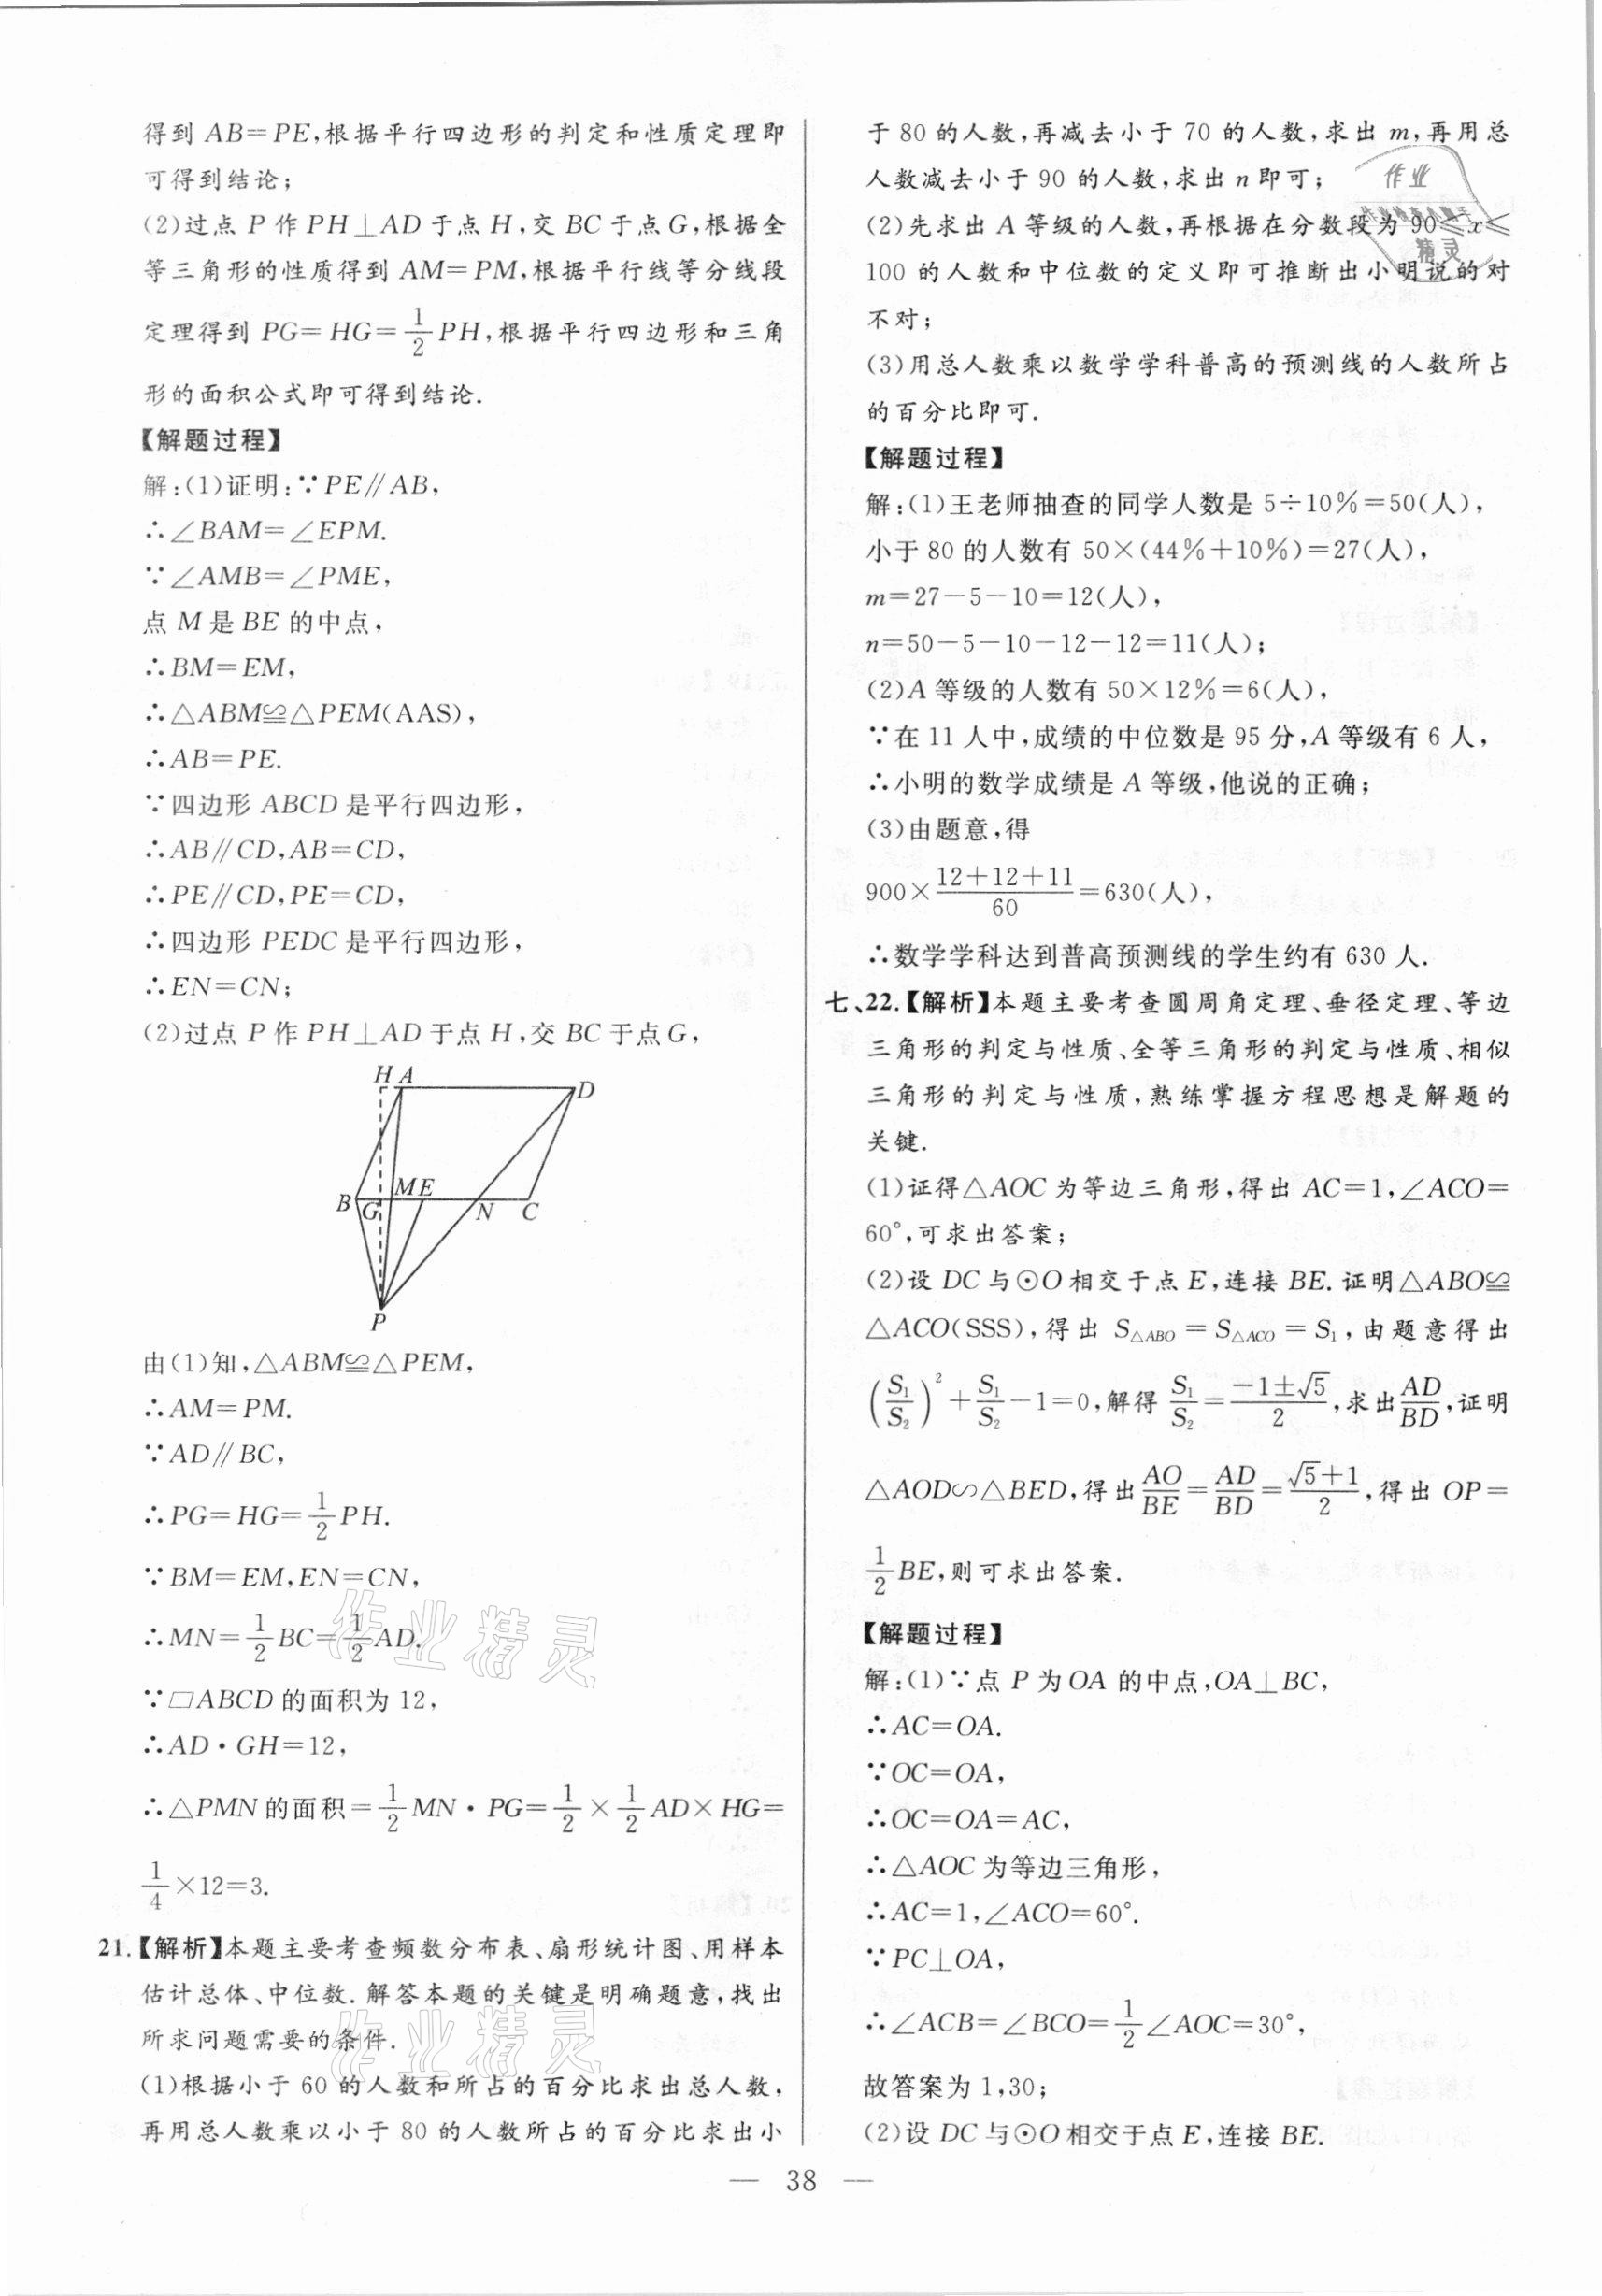 得到 AB=PE,根据平行四边形的判定和性质定理即
可得到结论;
(2)过点 P 作 PH⊥AD 于点 H,交 BC 于点 G,根据全
等三角形的性质得到 AM=PM,根据平行线等分线段
定理得到 PG=HG=1/2 PH,根据平行四边形和三角
形的面积公式即可得到结论.
【解题过程】
解:(1)证明:∵PE∥AB,
∴∠BAM=∠EPM.
∵∠AMB=∠PME,
点 M 是 BE 的中点,
∴BM=EM,
∴△ABM≌△PEM(AAS),
∴AB=PE.
∵四边形 ABCD 是平行四边形,
∴AB∥CD,AB=CD,
∴PE∥CD,PE=CD,
∴四边形 PEDC 是平行四边形,
∴EN=CN;
(2)过点 P 作 PH⊥AD 于点 H,交 BC 于点 G,
H A D
B G M E N C
P
由(1)知,△ABM≌△PEM,
∴AM=PM.
∵AD∥BC,
∴PG=HG=1/2 PH.
∵BM=EM,EN=CN,
∴MN=1/2 BC=1/2 AD.
∵▱ABCD 的面积为 12,
∴AD·GH=12,
∴△PMN 的面积=1/2 MN·PG=1/2×1/2 AD×HG=
1/4×12=3.
21.【解析】本题主要考查频数分布表、扇形统计图、用样本
估计总体、中位数.解答本题的关键是明确题意,找出
所求问题需要的条件.
(1)根据小于 60 的人数和所占的百分比求出总人数,
再用总人数乘以小于 80 的人数所占的百分比求出小
于 80 的人数,再减去小于 70 的人数,求出 m,再用总
人数减去小于 90 的人数,求出 n 即可;
(2)先求出 A 等级的人数,再根据在分数段为 90≤x≤
100 的人数和中位数的定义即可推断出小明说的对
不对;
(3)用总人数乘以数学学科普高的预测线的人数所占
的百分比即可.
【解题过程】
解:(1)王老师抽查的同学人数是 5÷10%=50(人),
小于 80 的人数有 50×(44%+10%)=27(人),
m=27-5-10=12(人),
n=50-5-10-12-12=11(人);
(2)A 等级的人数有 50×12%=6(人),
∵在 11 人中,成绩的中位数是 95 分,A 等级有 6 人,
∴小明的数学成绩是 A 等级,他说的正确;
(3)由题意,得
900×(12+12+11)/60=630(人),
∴数学学科达到普高预测线的学生约有 630 人.
七、22.【解析】本题主要考查圆周角定理、垂径定理、等边
三角形的判定与性质、全等三角形的判定与性质、相似
三角形的判定与性质,熟练掌握方程思想是解题的
关键.
(1)证得△AOC 为等边三角形,得出 AC=1,∠ACO=
60°,可求出答案;
(2)设 DC 与⊙O 相交于点 E,连接 BE.证明△ABO≌
△ACO(SSS),得出 S△ABO=S△ACO=S₁,由题意得出
(S₁/S₂)²+S₁/S₂-1=0,解得 S₁/S₂=(-1±√5)/2,求出AD/BD,证明
△AOD∽△BED,得出AO/BE=AD/BD=(√5+1)/2,得出 OP=
1/2 BE,则可求出答案.
【解题过程】
解:(1)∵点 P 为 OA 的中点,OA⊥BC,
∴AC=OA.
∵OC=OA,
∴OC=OA=AC,
∴△AOC 为等边三角形,
∴AC=1,∠ACO=60°.
∵PC⊥OA,
∴∠ACB=∠BCO=1/2∠AOC=30°,
故答案为 1,30;
(2)设 DC 与⊙O 相交于点 E,连接 BE.
— 38 —
作业
精灵
作业精灵
作业精灵